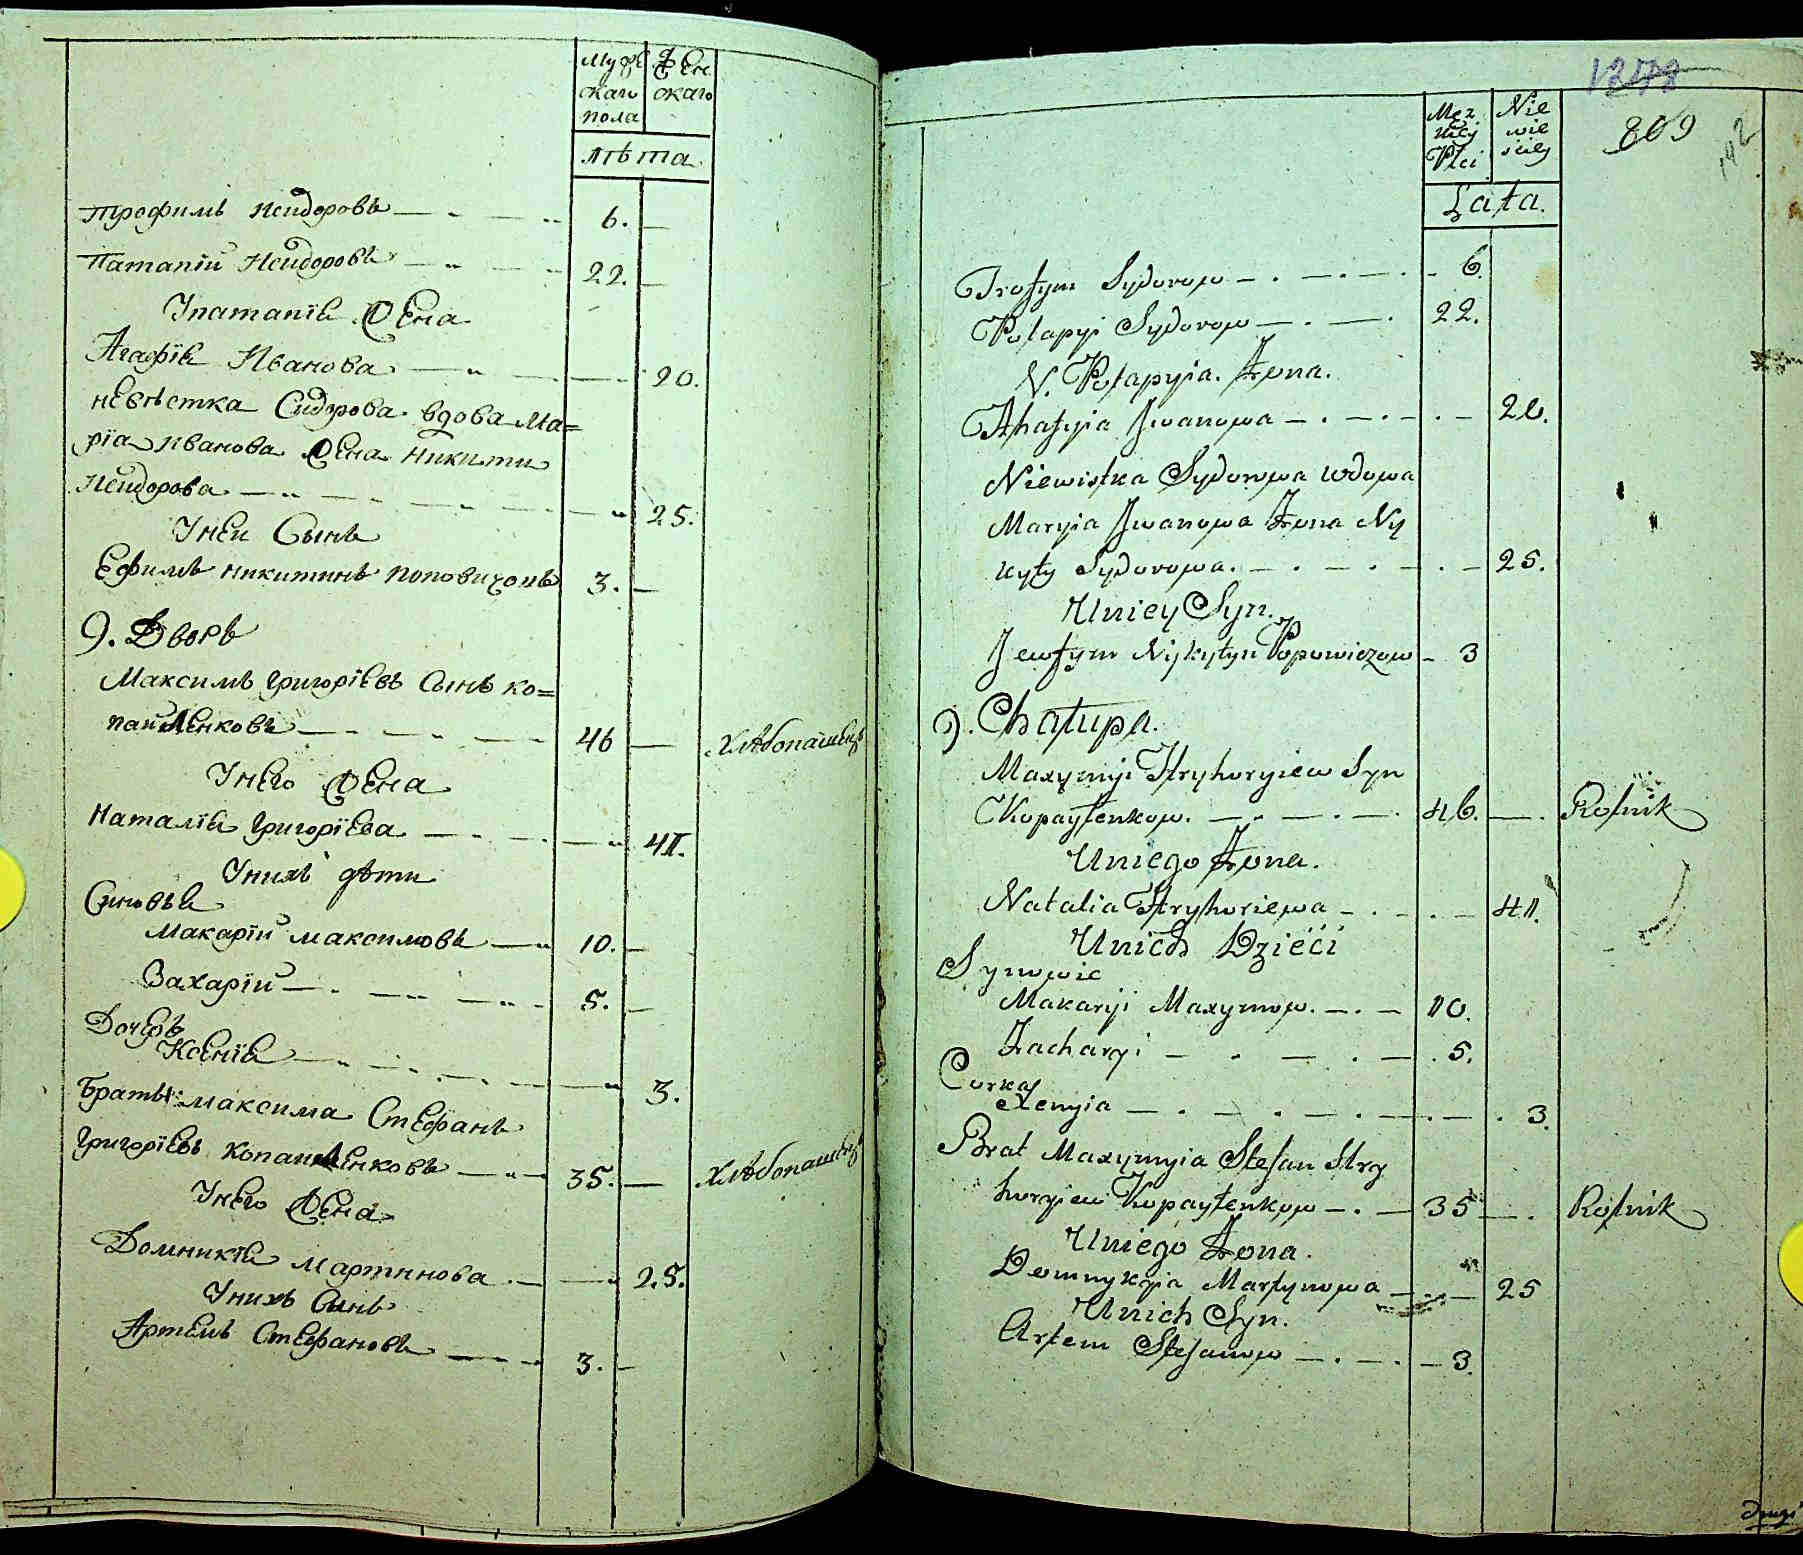 Мужескаго пола
Женскаго
лѣта.
Трофимъ Исидоровъ 6.
Патапій Исидоровъ 22.
Упатапія Жена
Агафія Иванова 20.
невѣстка Сидорова вдова Ма=
рія Иванова Жена Никити
Исидорова 25.
Унеи Сынъ
Ефимъ Никитинъ Поповичовъ 3.
9. Дворъ
Максимъ Григоріевъ Сынъ Ко=
пайленковъ 46 Хлѣбопашецъ
Унего Жена
Наталія Григоріева 41.
Унихъ дѣти
Синовья
Макарій Максимовъ 10.
Захарій 5.
Дочерь
Ксенія 3.
Братъ Максима Стефанъ
Григоріевъ Копайленковъ 35. Хлѣбопашецъ
Унего Жена
Домникія Мартинова 25.
Унихъ Сынъ
Артемъ Стефановъ 3.
1278
809
Męz
kiey
Płci
Nie
wie
sciey
Łata.
Trofym Sydorow 6.
Potapyi Sydorow 22.
U. Potapyia. Żona.
Ahafyia Jwanowa 20.
Niewistka Sydorowa wdowa
Maryia Jwanowa Żona Ny
kyty Sydorowa. 25.
Uniey Syn.
Jewfym Nykytyn Popowiczow 3
9. Chałupa.
Maxymyi Hryhoryiew Syn
Kopaylenkow. 46. Rolnik
Uniego Żona.
Natalia Hryhoriewa 41.
Unich Dzieci
Synowie
Makaryi Maxymow. 10.
Zacharyi 5.
Curka
Xenyia 3.
Brat Maxymyia Stefan Hry
horyiew Kopaylenkow 35 Rolnik
Uniego Żona.
Domnykyia Martynowa 25
Unich Syn.
Artem Stefanow 3.